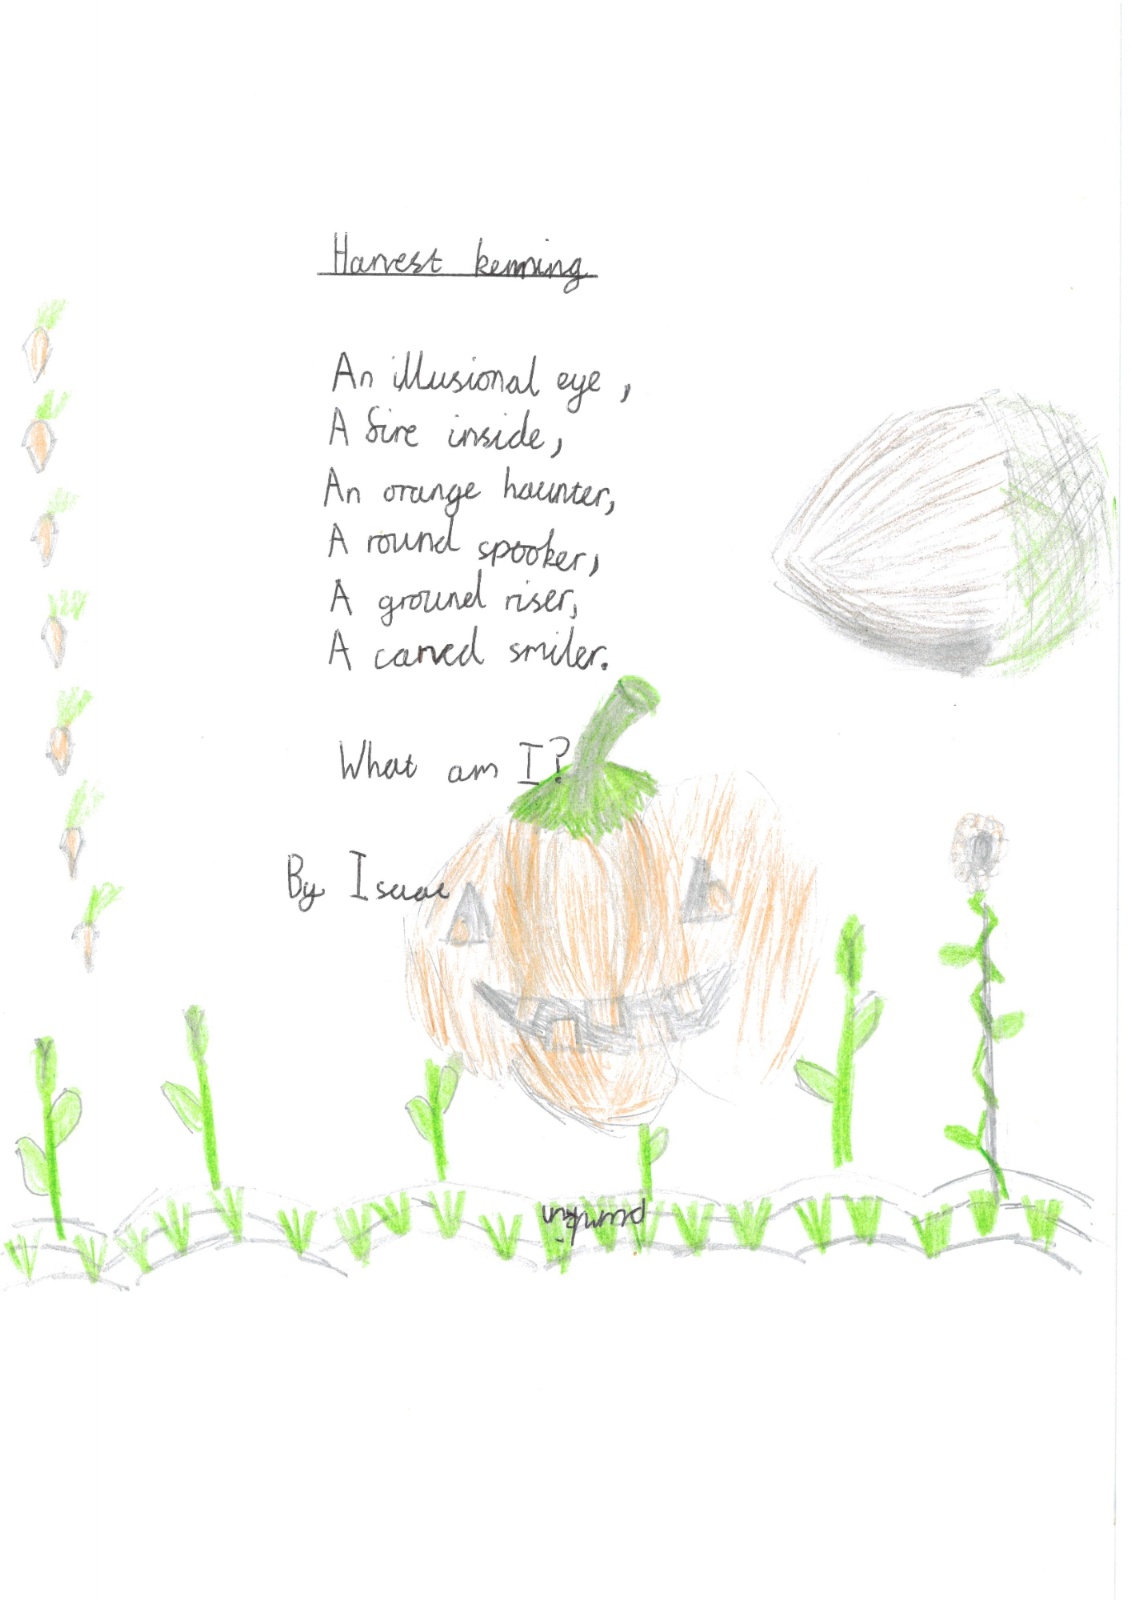 Harvest kenning
An illusional eye,
A fire inside,
An orange haunter,
A round spooker,
A ground riser,
A carved smiler.
What am I?
By Isaac
pumkin